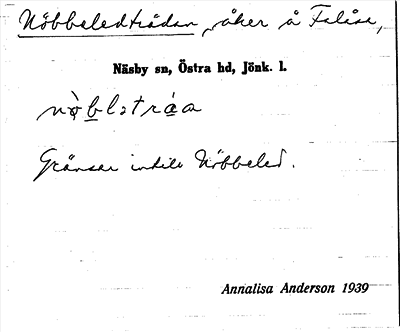 Nöbbeledträdan, åker å Falåsa,
Näsby sn, Östra hd, Jönk. l.
nò̱bləträ́a
Gränsar intill Nöbbeled.
Annalisa Anderson 1939